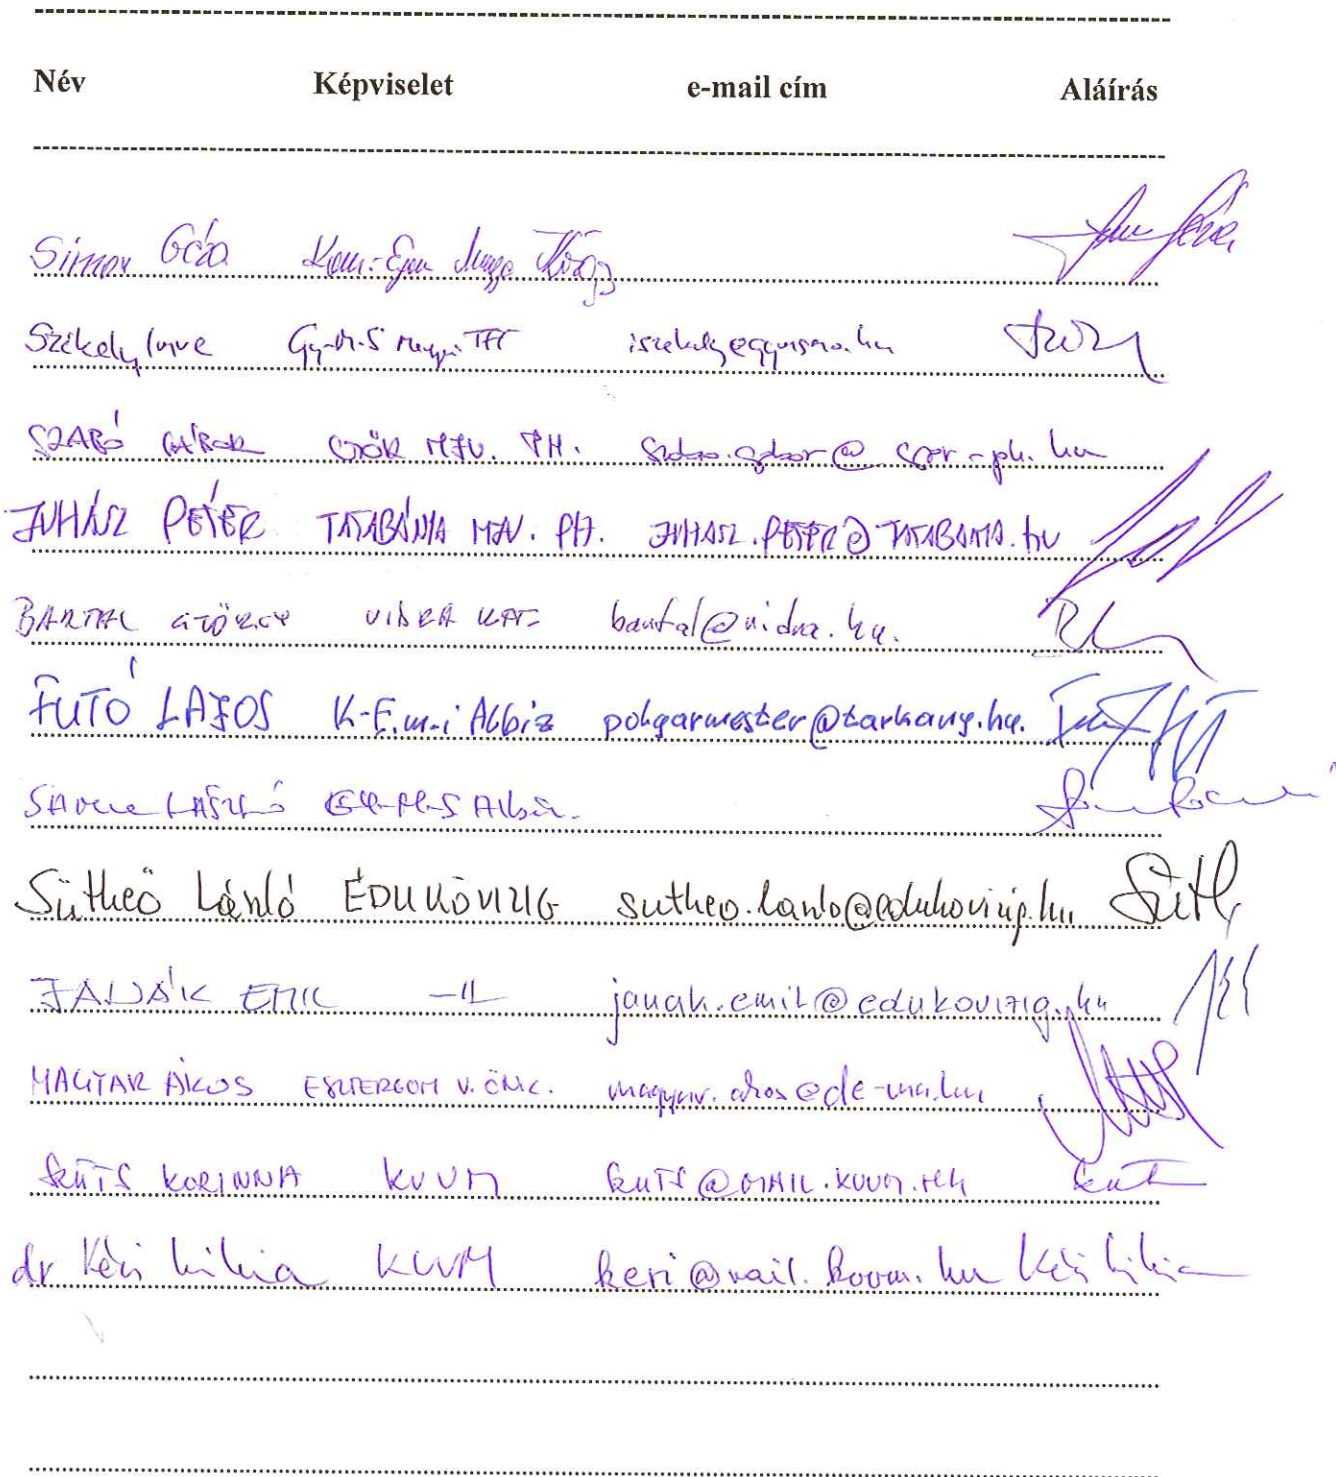 Név Képviselet e-mail cím Aláírás
Simon Géza Kom-Esz Megye
Székely Imre Gy-M-S Megyei TFT
SZABÓ GÁBOR GYŐR MJV. PH. @ gyor-ph.hu
JUHÁSZ PÉTER TATABÁNYA MJV. PH. JUHASZ.PETER@TATABANYA.hu
BARTAL GYÖRGY VIDRA KFT bartal@vidra.hu.
FUTÓ LAJOS K-E.m-i Albiz polgarmester@tarkany.hu.
LÁSZLÓ GY-M-S Albiz.
Sütheő László ÉDUKÖVIZIG sutheo.laszlo@edukovizig.hu Süth
JANÁK EMIL -||- janak.emil@edukovizig.hu
MAGYAR ÁKOS ESZTERGOM V. ÖNK.
KORINNA KVVM @MAIL.KVVM.HU
dr Kéri Lilla KVVM keri@mail.kvvm.hu Kéri